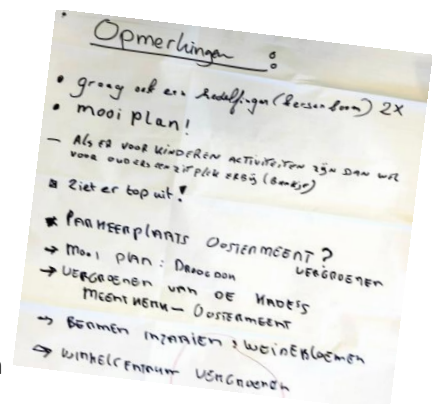 Opmerkingen :
• graag ook een hedelfinger (kersenboom) 2x
• mooi plan!
– Als er voor kinderen activiteiten zijn dan wel
voor ouders een zitplek erbij (bankje)
Ziet er top uit!
* Parkeerplaats Oostermeent?
vergroenen
→ mooi plan:
→ vergroenen van de
Meentherk – Oostermeent
→ Bermen inzaaien: weidebloemen
→ winkelcentrum vergroenen